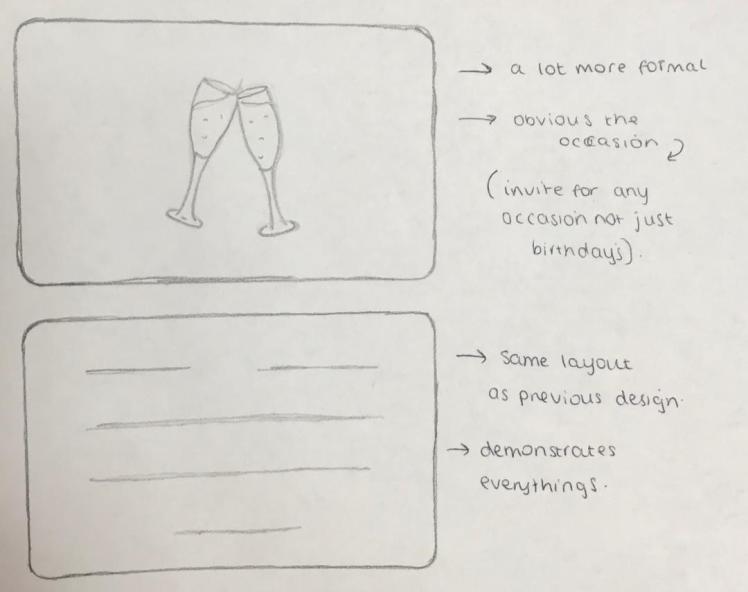 → a lot more formal
→ obvious the
occasion
(invite for any
occasion not just
birthday's).
→ same layout
as previous design.
→ demonstrates
everythings.